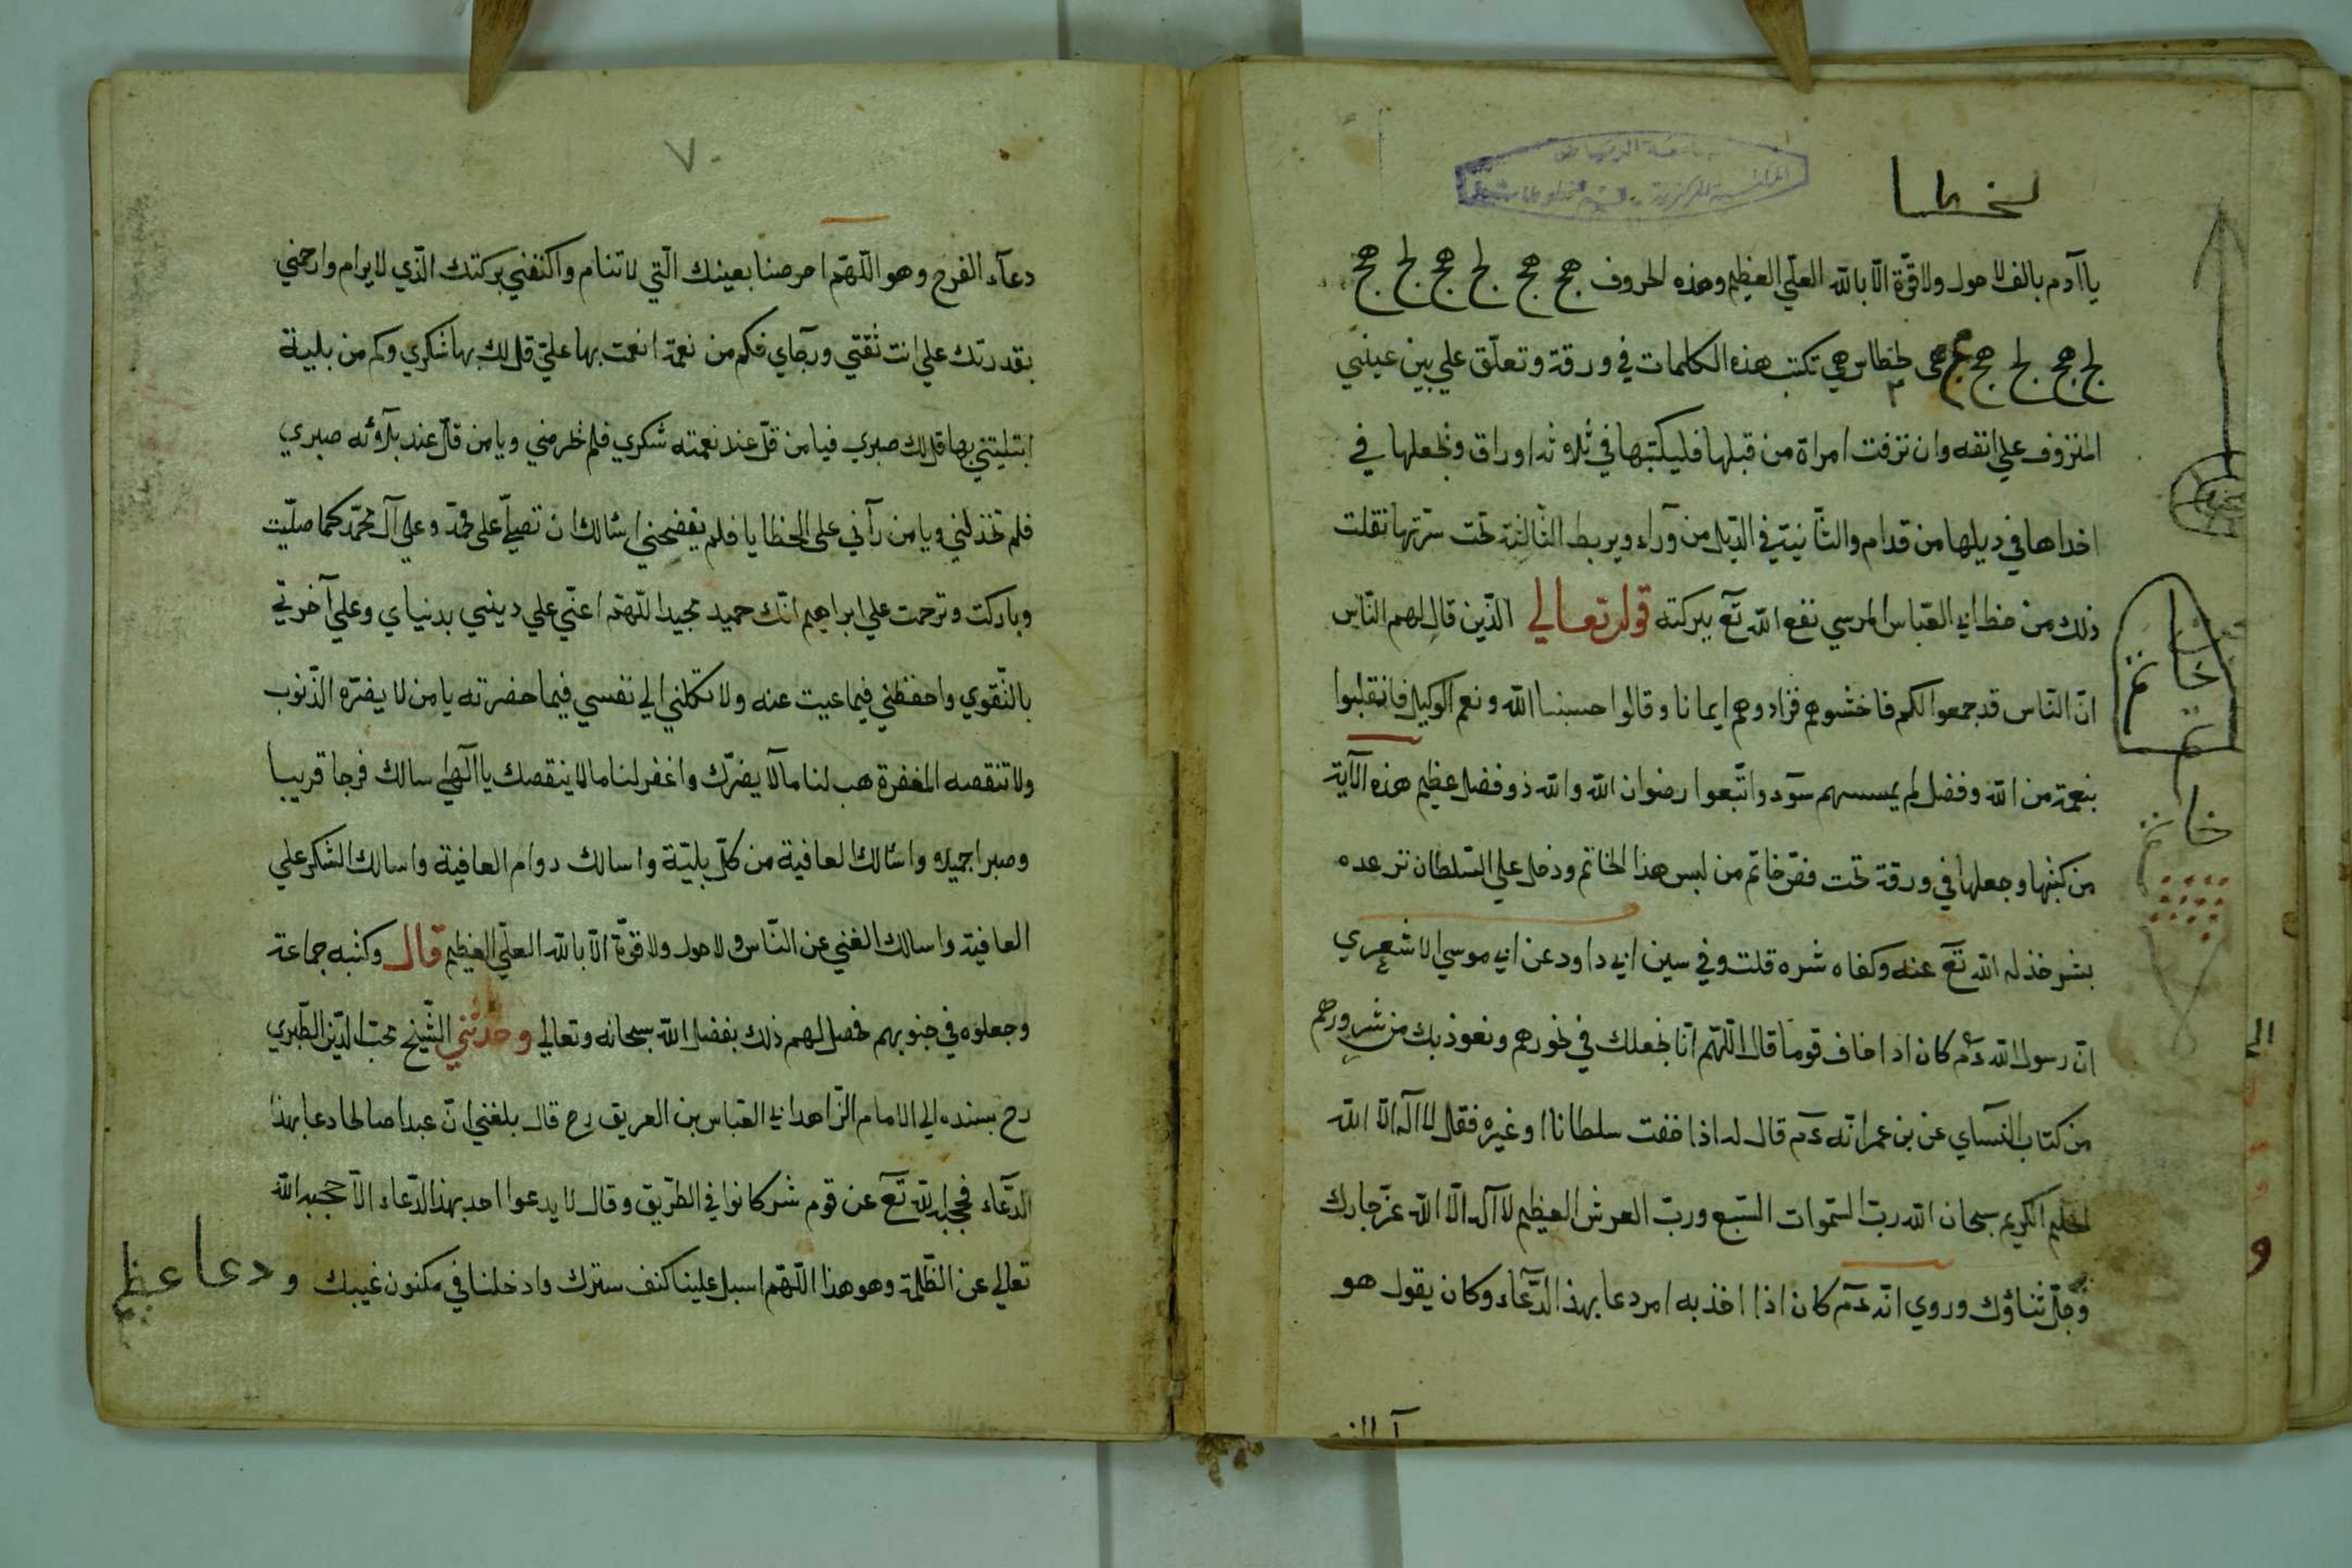 لخطا
ياآدم بالف لا حول ولا قوّة الّا بالله العلّي العظيم وهذه الحروف هج هج لج هج لج هج
لج هج لج هج هج هى لخطاس هي تكتب هذه الكلمات في ورقة وتعلّق علي بين عينيي
المنزوف علي انفه وان نزفت امراة من قبلها فليكتبها في ثلاوثه اوراق ونجعلها في
احداها في ديلها من قدام والثّانيتى في الدّيل من وَراء ويربط الثّالثة تحت سرّتها نقلت
ذلك من خط ابي العبّاس المرسي نفع الله تَع ببركته قوله تعالي الّذين قال لهم النّاس
انّ النّاس قد جمعوا لكم فاخشوهم فزادوهم ايمانا وقالوا حسبنا الله ونعم الوكيل فانقلبوا
بنعمة من الله وفضل لم يمسسهم سوٓء واتّبعوا رضوان الله والله ذو فضل عظيم هذه الآية
من كتبها وجعلها في ورقة تحت فصّ خاتم من لبس هذا الخاتم ودخل علي السّلطان ترعده
بشر خذله الله تَع عنه وكفاه شره قلت وفي سين ابي داود عن ابي موسي الاشعري
انّ رسول الله ءم كان اذا خاف قوما قال اللّهمّ انّا نجعلك في نحورهم ونعوذ بك من شرورهم
من كتاب النسآي عن بن عمر انّه ءم قال له اذا خفت سلطانا او غيره فقل لا اله الّا الله
الحليم الكريم سبحان الله ربّ السّموات السّبع وربّ العرش العظيم لا اله الّا الله عزّ جارك
وجلّ ثناؤك وروي انّه ءم كان اذا اخذ به امر دعا بهذا الدّعاء وكان يقول هو
خاتم
خاتم
٧
دعآء الفرج وهو اللّهمّ احرصنا بعينك الّتي لا تنام واكنفني بركتك الّذي لا يرام وارحمني
بقدرتك علي انت ثقتي ورجآي فكم من نعمة انعمت بها عليّ قل لك بها شكري وكم من بلية
ابتليتني بها قل لك صبري فيا من قلّ عند نعمته شكري فلم يحرمني ويا من قلّ عند بلاوئه صبري
فلم تخذلني ويا من رآني علي الخطايا فلم يفضحني اسّالك ان تصلّي علي محمّد وعلي آل محمّد كما صلّيت
وباركت وترحمت علي ابراهيم انّك حميد مجيد اللّهمّ اعنّي علي ديني بدنياي وعلي آخرتي
بالتّقوي واحفظني فيما غبت عنه ولا تكلني الي نفسي فيما حضرته يا من لا يضرّه الذّنوب
ولا تنقصه المغفرة هب لنا ما لا يضرّك واغفر لنا ما لا ينقصك يا الٓهي سالك فرجا قريبا
وصبرا جميلا واسّالك العافية من كلّ بليّة واسالك دوام العافية واسالك الشكر علي
العافية واسالك الغني عن النّاس ولا حول ولا قوّة الّا بالله العلّي العظيم قال وكتبه جماعة
وجعلوه في جنوبهم فحصل لهم ذلك بفضل الله سبحانه وتعالي وحدّثني الشّيخ محبّ الدّين الطّبري
رح بسنده الي الامام الزّاهد ابي العبّاس بن العريف رح قال بلغني انّ عبدا صالحا دعا بهذا
الدّعاء فحجبه الله تَع عن قوم شر كانوا في الطّريق وقال لا يدعوا احد بهذا الدّعاء الّا حجبه الله
تعالي عن الظّلمة وهو هذا اللّهمّ اسبل علينا كنف سترك وادخلنا في مكنون غيبك و
دعا عظيم